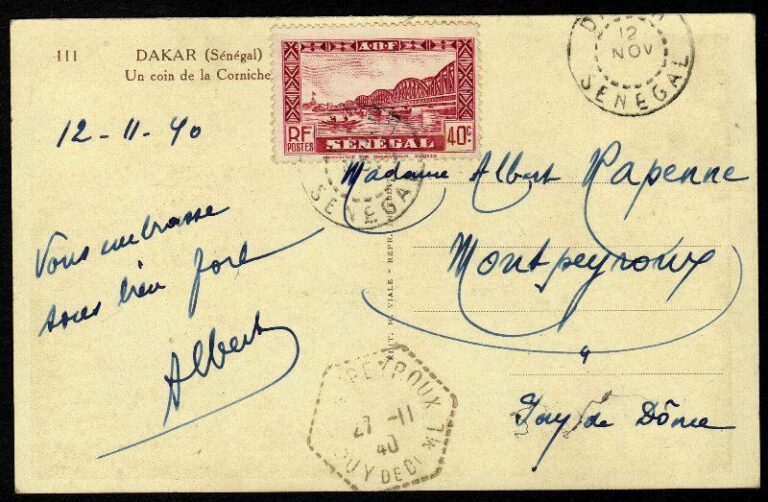 111
DAKAR (Sénégal)
Un coin de la Corniche
A O F
RF
POSTES
40c
SÉNÉGAL
12
NOV
SENEGAL
SENEGAL
12-11-40
Vous embrasse
tous bien fort
Albert
Madame Albert Papenne
Montpeyroux
Puy de Dôme
PEYROUX
27 -11
40
PUY DE D